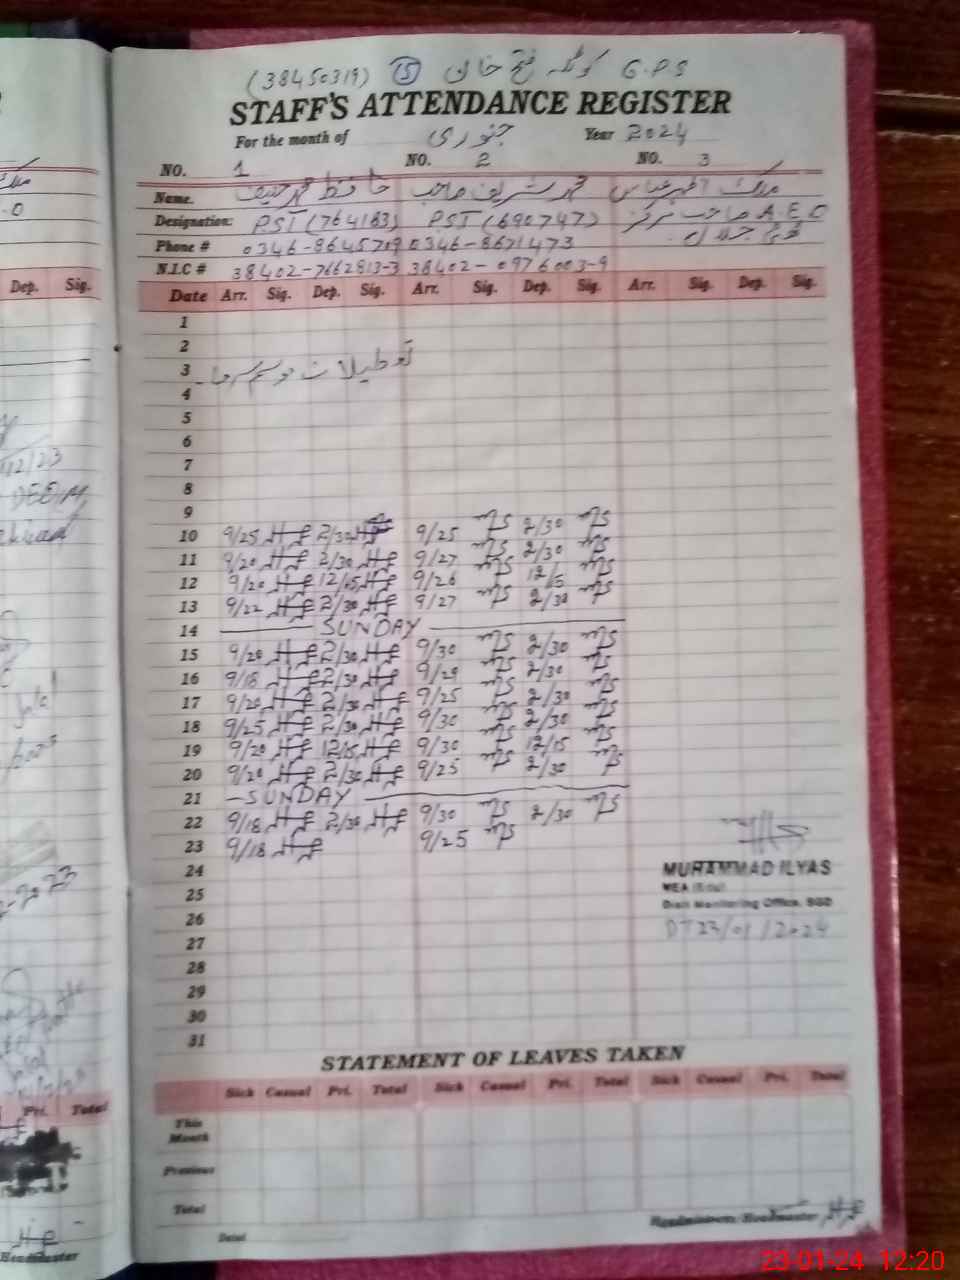 (38450319) (15) کوٹلہ فتح خان G.P.S
STAFF'S ATTENDANCE REGISTER
For the month of جنوری Year 2024
NO. 1 NO. 2 NO. 3
Name. حافظ محمد حنیف محمد شریف صاحب ملک اظہر عباس
Designation: PST (764183) PST (690747) A.E.O صاحب مرکز
Phone # 0346-8645719 0346-8671473
N.I.C # 38402-7662813-3 38402-0976003-9
Dep. Sig.
Date Arr. Sig. Dep. Sig. Arr. Sig. Dep. Sig. Arr. Sig. Dep. Sig.
1
2
3 تعطیلات موسم سرما
4
5
6
7
8
9
10 9/25 HF 2/30 HF 9/25 MS 2/30 MS
11 9/20 HF 2/30 HF 9/27 MS 2/30 MS
12 9/20 HF 12/15 HF 9/26 MS 12/15 MS
13 9/22 HF 2/30 HF 9/27 MS 2/30 MS
14 SUNDAY
15 9/20 HF 2/30 HF 9/30 MS 2/30 MS
16 9/18 HF 2/30 HF 9/29 MS 2/30 MS
17 9/20 HF 2/30 HF 9/25 MS 2/30 MS
18 9/25 HF 2/30 HF 9/30 MS 2/30 MS
19 9/20 HF 12/15 HF 9/30 MS 12/15 MS
20 9/20 HF 2/30 HF 9/25 MS 2/30 MS
21 SUNDAY
22 9/18 HF 2/30 HF 9/30 MS 2/30 MS
23 9/18 HF 9/25 MS
24
25
26
27
28
29
30
31
MUHAMMAD ILYAS
MEA (Edu)
Distt Monitoring Office, SGD
DT 23/01/2024
STATEMENT OF LEAVES TAKEN
Sick Casual Pri. Total Sick Casual Pri. Total Sick Casual Pri. Total
Pri. Total
This Month
Previous
Total
Headmistress/Headmaster HF
Headmaster
23-01-24 12:20